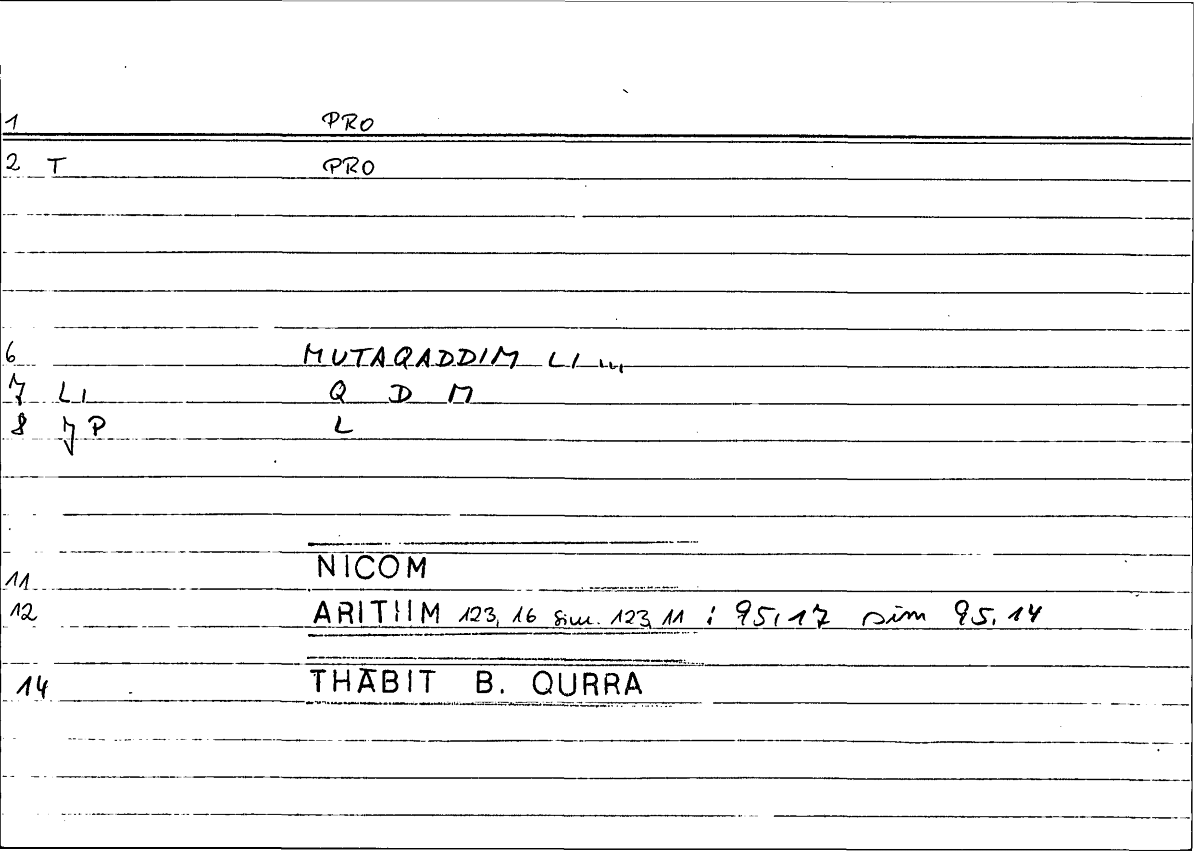 1 PRO
2 T PRO
6 MUTAQADDIM LI ...
7 LI Q D M
8 JP L
11 NICOM
12 ARITHM 123, 16 sim. 123, 11 ; 95,17 sim 95,14
14 THĀBIT B. QURRA